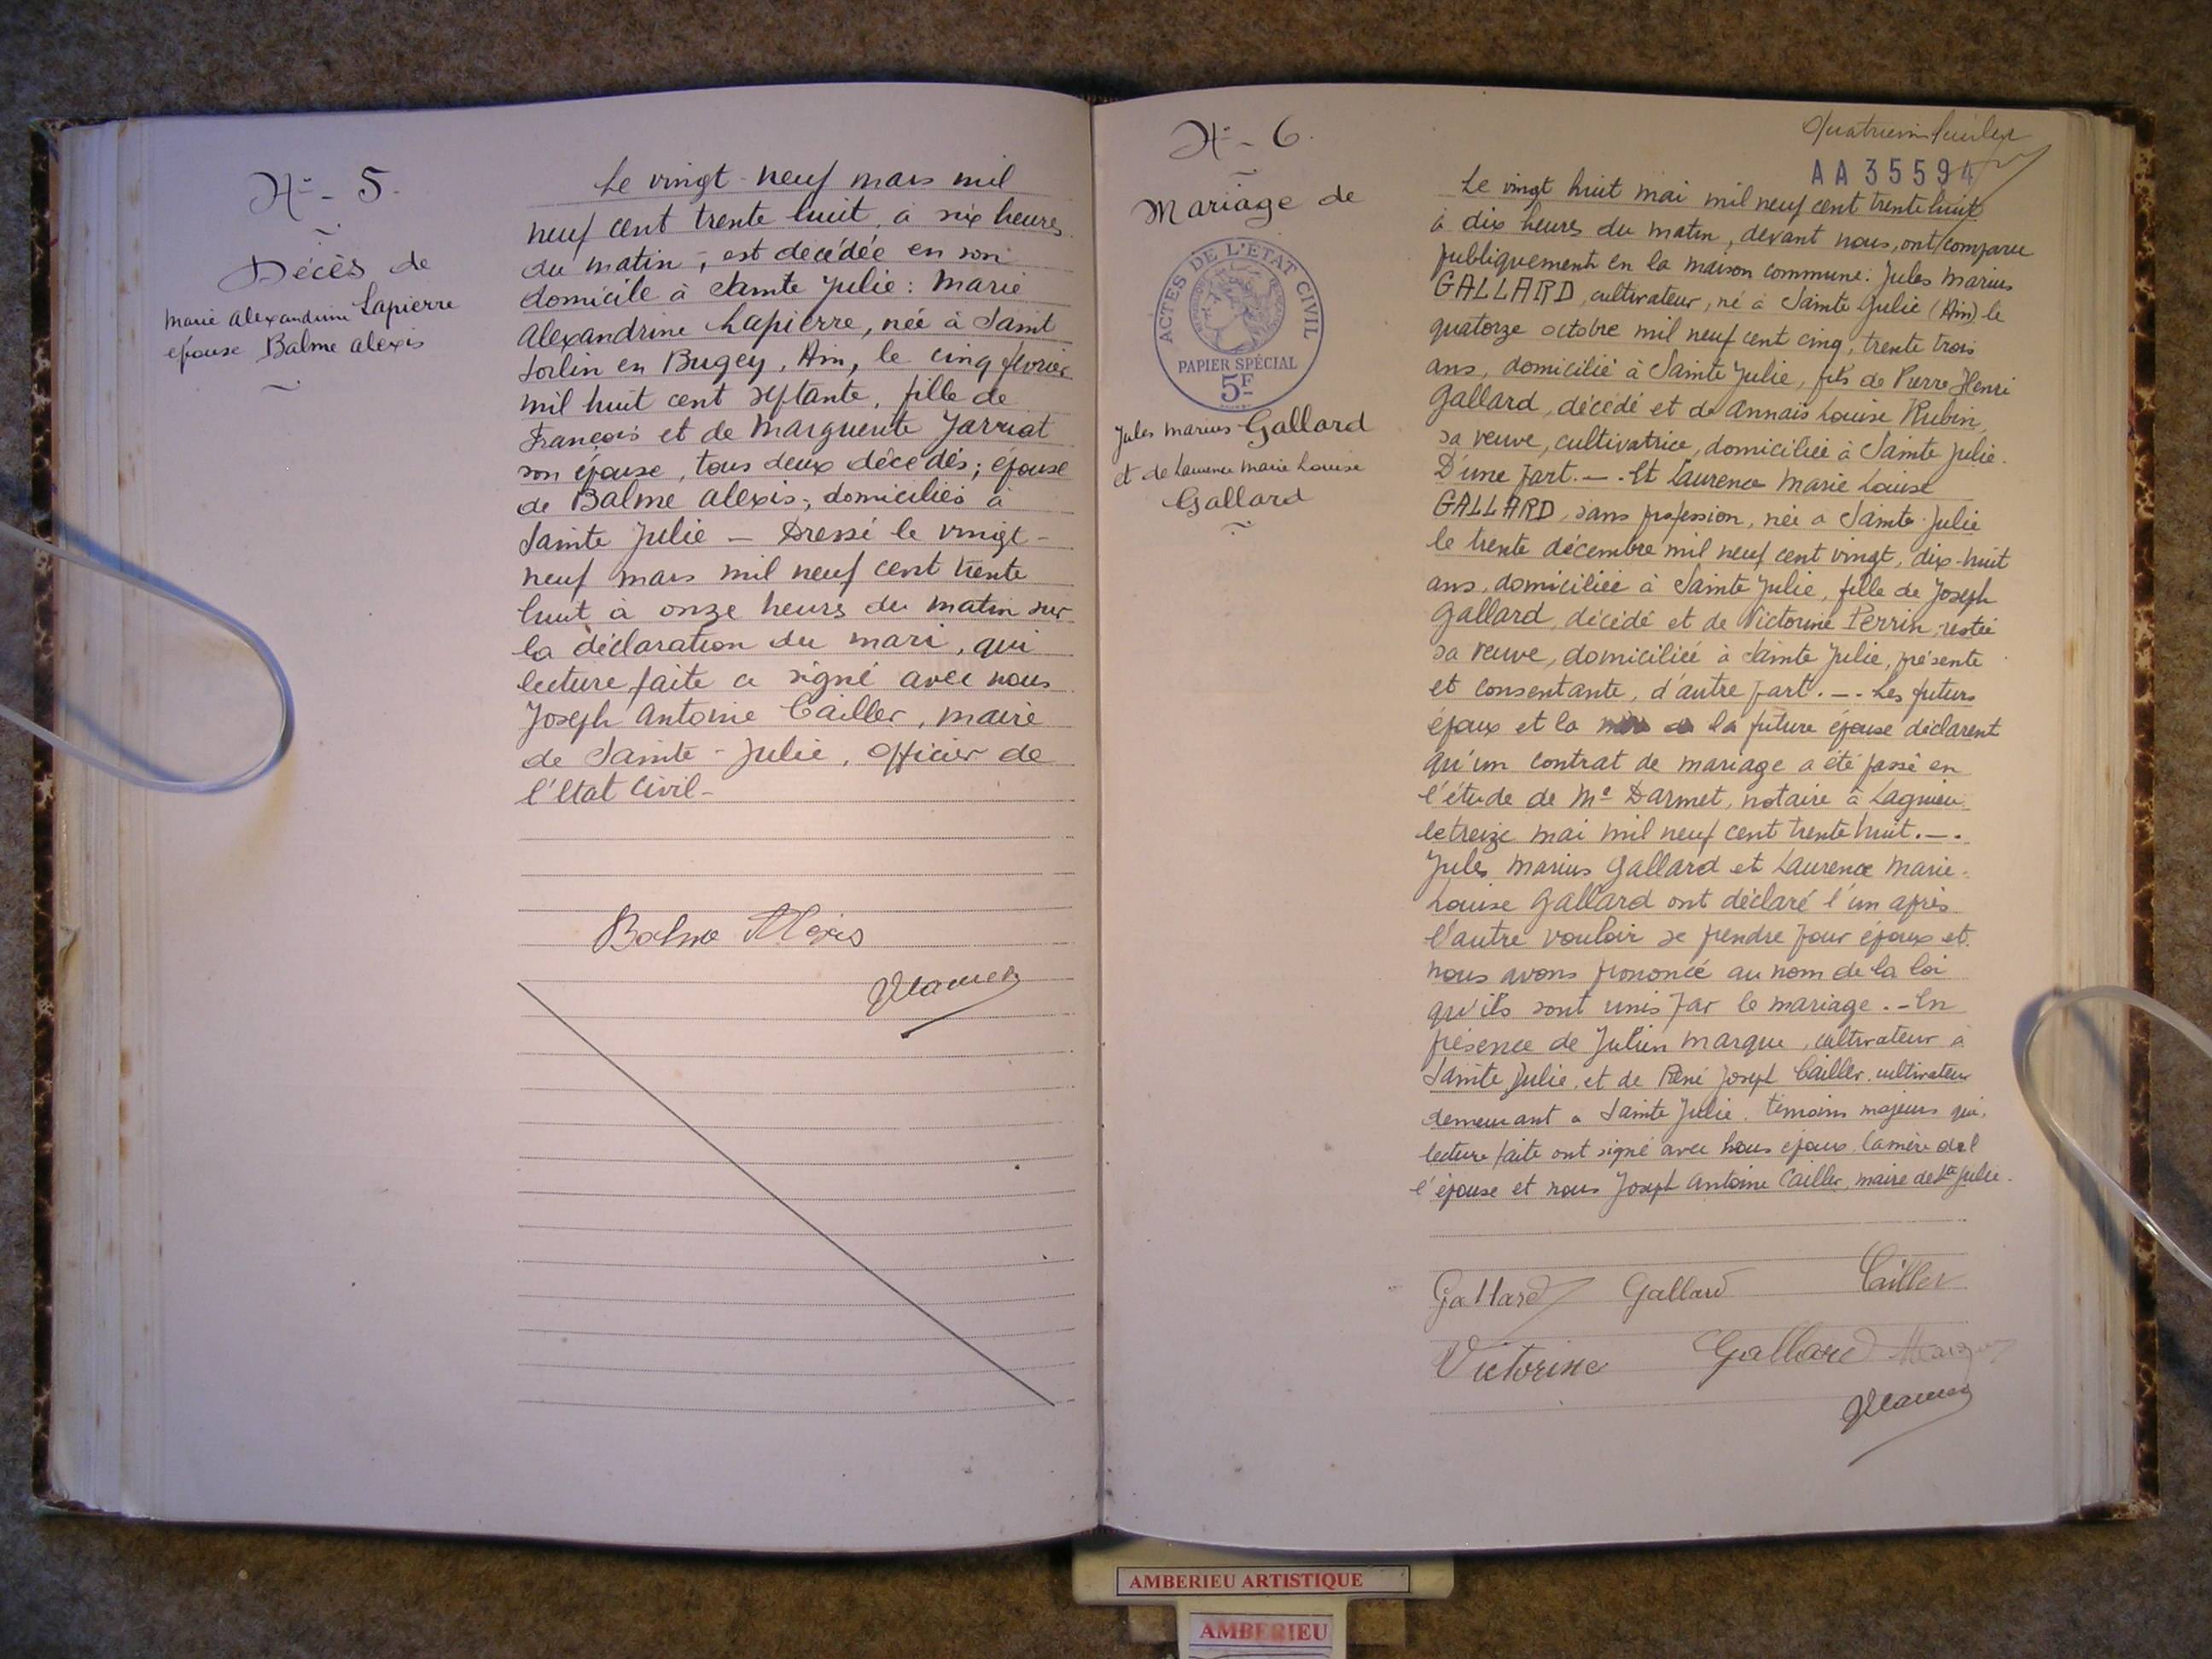 N° - 5.
Décès de
Marie Alexandrine Lapierre
épouse Balme Alexis
Le vingt-neuf mars mil
neuf cent trente huit, à six heures
du matin, est décédée en son
domicile à Sainte Julie : Marie
Alexandrine Lapierre, née à Saint
Sorlin en Bugey, Ain, le cinq février
mil huit cent septante, fille de
François et de Marguerite Jarriat
son épouse, tous deux décédés; épouse
de Balme Alexis; domiciliés à
Sainte Julie — Dressé le vingt-
neuf mars mil neuf cent trente
huit à onze heures du matin sur
la déclaration du mari, qui
lecture faite a signé avec nous
Joseph Antoine Cailler, maire
de Sainte-Julie, Officier de
l'Etat Civil-
Balme Alexis
N° - 6.
Mariage de
ACTES DE L'ETAT CIVIL
PAPIER SPÉCIAL
5F
Jules Marius Gallard
et de Laurence Marie Louise
Gallard
AA 35594
Le vingt huit mai mil neuf cent trente huit
à dix heures du matin, devant nous, ont comparu
publiquement en la maison commune: Jules Marius
GALLARD, cultivateur, né à Sainte Julie (Ain) le
quatorze octobre mil neuf cent cinq, trente trois
ans, domicilié à Sainte Julie, fils de Pierre Henri
Gallard, décédé et de Annaïs Louise Rubin,
sa veuve, cultivatrice, domiciliée à Sainte Julie.
D'une part. — . Et Laurence Marie Louise
GALLARD, sans profession, née a Sainte-Julie
le trente décembre mil neuf cent vingt, dix-huit
ans, domiciliée à Sainte Julie, fille de Joseph
Gallard, décédé et de Victorine Perrin, restée
sa veuve, domiciliée à Sainte Julie, présente
et consentante, d'autre part. — . Les futurs
époux et la mère de la future épouse déclarent
qu'un contrat de mariage a été passé en
l'étude de Me Darmet, notaire à Lagnieu
le treize mai mil neuf cent trente huit. — .
Jules Marius Gallard et Laurence Marie-
Louise Gallard ont déclaré l'un après
l'autre vouloir se prendre pour époux et
nous avons prononcé au nom de la loi
qu'ils sont unis par le mariage. - En
présence de Julien Marque, cultivateur à
Sainte Julie, et de René Joseph Cailler, cultivateur
demeurant a Sainte Julie, témoins majeurs qui,
lecture faite ont signé avec nous époux, la mère de l
l'épouse et nous Joseph Antoine Cailler, maire de Ste Julie.
Gallard Gallard Cailler
Victorine Gallard
AMBERIEU ARTISTIQUE
AMBERIEU